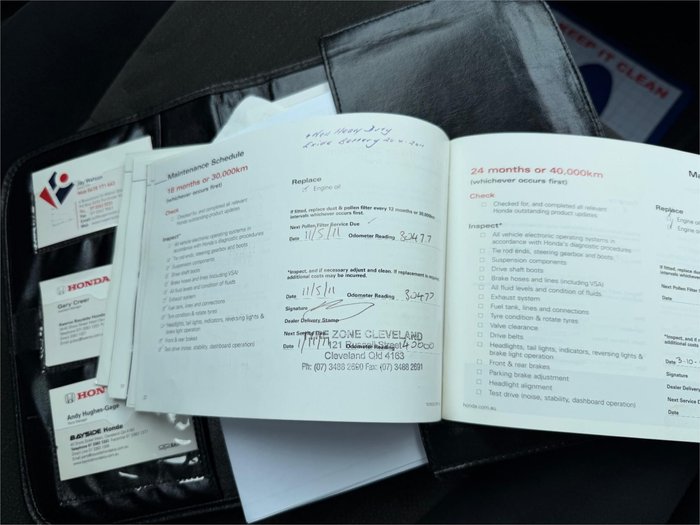 KEEP IT CLEAN
Jay Watson
HONDA
Gary Creer
HON
Andy Hughes-Gage
BAYSIDE Honda
Maintenance Schedule
18 months or 30,000km
(whichever occurs first)
Check
Checked for, and completed all relevant
Honda outstanding product updates.
Inspect*
All vehicle electronic operating systems in
accordance with Honda's diagnostic procedures.
Tie rod ends, steering gearbox and boots
Suspension components
Drive shaft boots
Brake hoses and lines (including VSA)
All fluid levels and condition of fluids
Exhaust system
Fuel tank, lines and connections
Tyre condition & rotate tyres
Headlights, tail lights, indicators, reversing lights &
brake light operation
Front & rear brakes
Test drive (noise, stability, dashboard operation)
New Heavy Duty
Battery
Replace
Engine oil
If fitted, replace dust & pollen filter every 12 months or 30,000km
intervals whichever occurs first.
Next Pollen Filter Service Due
Date 11/5/11 Odometer Reading 30477
*Inspect, and if necessary adjust and clean. If replacement is required
additional costs may be incurred.
Date 11/5/11 Odometer Reading 30477
Signature
Dealer Delivery Stamp
ZONE CLEVELAND
Next Service Due
Date 11/11/11 Odometer Reading 40000
121 Russell Street
Cleveland Qld 4163
Ph: (07) 3488 2690 Fax: (07) 3488 2691
24 months or 40,000km
(whichever occurs first)
Check
Checked for, and completed all relevant
Honda outstanding product updates
Inspect*
All vehicle electronic operating systems in
accordance with Honda's diagnostic procedures.
Tie rod ends, steering gearbox and boots
Suspension components
Drive shaft boots
Brake hoses and lines (including VSA)
All fluid levels and condition of fluids.
Exhaust system
Fuel tank, lines and connections
Tyre condition & rotate tyres
Valve clearance
Drive belts
Headlights, tail lights, indicators, reversing lights &
brake light operation
Front & rear brakes
Parking brake adjustment
Headlight alignment
Test drive (noise, stability, dashboard operation)
honda.com.au
Ma
Replace
Engine
Engine o
If fitted, repla
intervals whic
Next Pollen F
Date
*Inspect, and if
additional costs
Date 3-10-
Signature
Dealer Delivery
Next Service D
Date